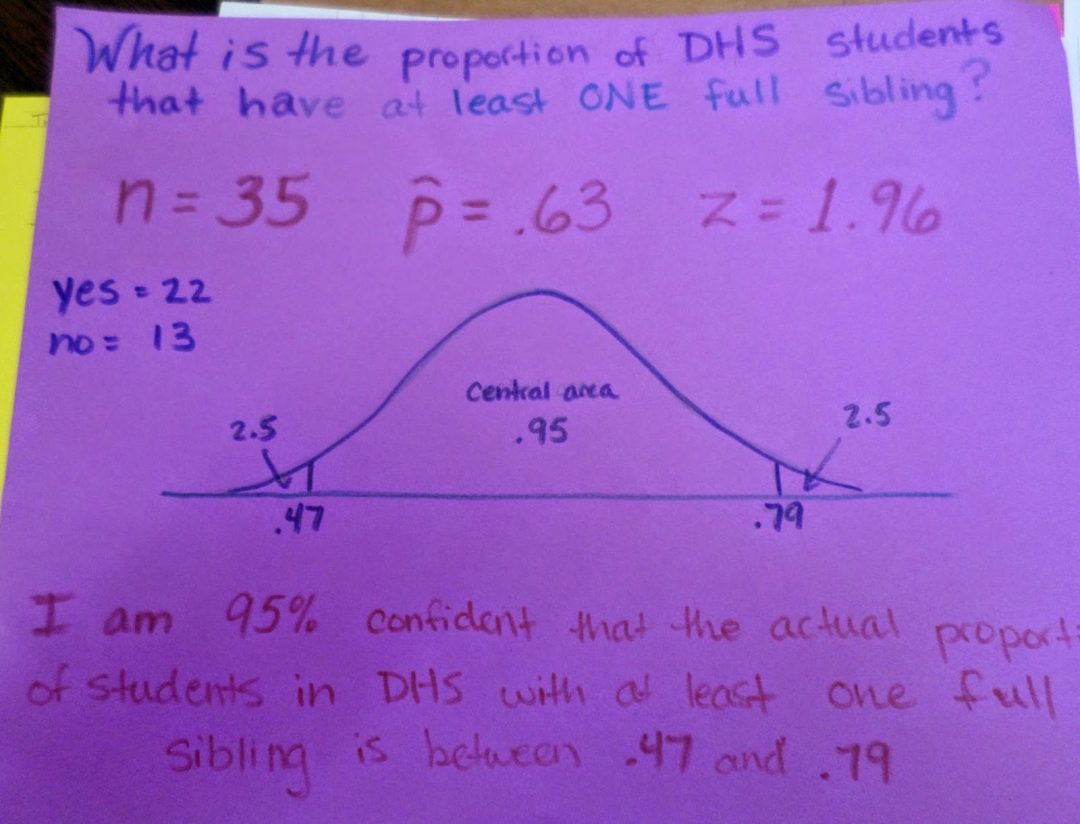 What is the proportion of DHS students
that have at least ONE full sibling?
n = 35 p̂ = .63 z = 1.96
yes = 22
no = 13
Central area
.95
2.5
2.5
.47
.79
I am 95% confident that the actual proporti
of students in DHS with at least one full
sibling is between .47 and .79